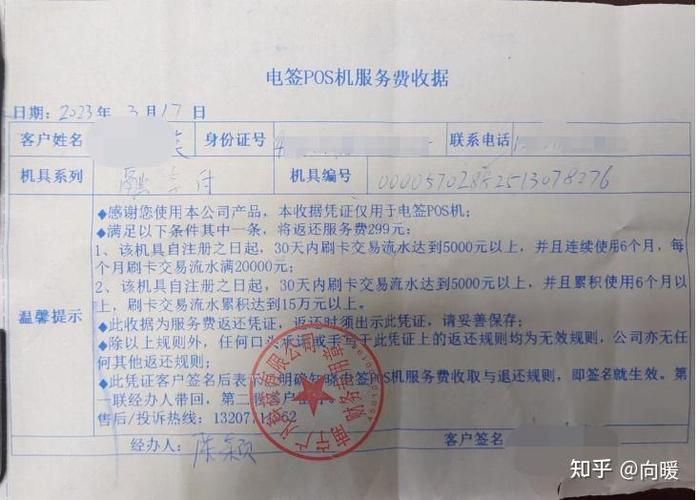 电签POS机服务费收据
日期：2023年 3月17日
客户姓名 身份证号 联系电话
机具系列 付 机具编号 00005702882513078276
◆感谢您使用本公司产品，本收据凭证仅用于电签POS机；
◆满足以下条件其中一条，将返还服务费299元：
1、该机具自注册之日起，30天内刷卡交易流水达到5000元以上，并且连续使用6个月，每
个月刷卡交易流水满20000元；
2、该机具自注册之日起，30天内刷卡交易流水达到5000元以上，并且累积使用6个月以
上，刷卡交易流水累积达到15万元以上。
温馨提示
◆此收据为服务费返还凭证，返还时须出示此凭证，请妥善保存；
◆除以上规则外，任何口头承诺或手写于此凭证上的返还规则均为无效规则，公司亦无任
何其他返还规则；
◆此凭证客户签名后表 明确知晓电签POS机服务费收取与退还规则，即签名就生效。第
一联经办人带回，第二联客户
售后/投诉热线：13207 62
有限公司
财务专用章
经办人：陈颖 客户签名
知乎 @向暖